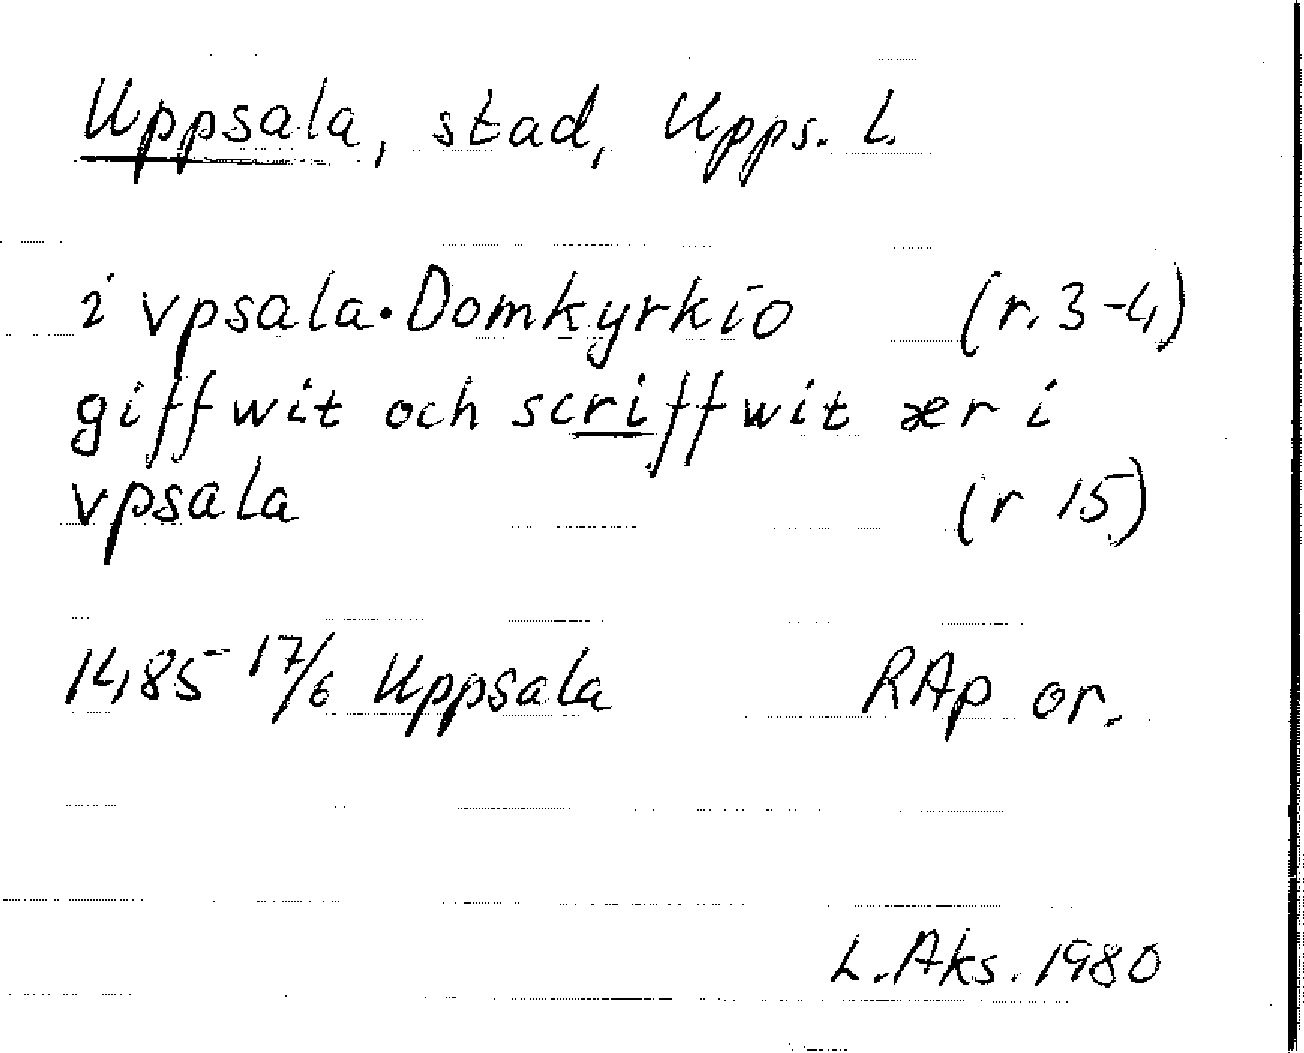 Uppsala, stad, Upps. L.
i vpsala·Domkyrkio (r. 3-4)
giffwit och scriffwit ær i
vpsala (r 15)
1485 17/6 Uppsala RAp or.
L. Aks. 1980